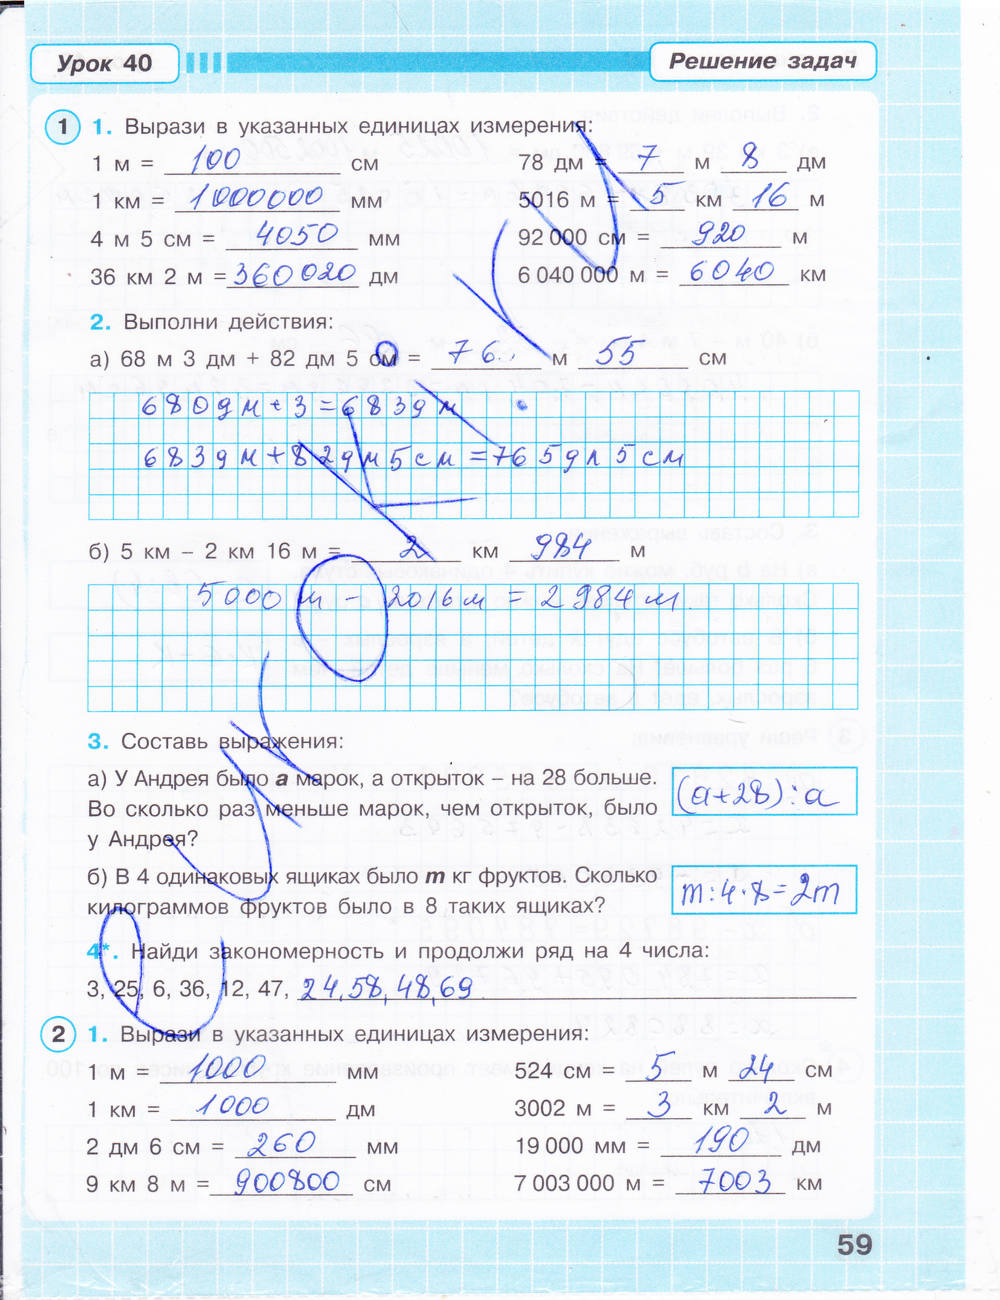 Урок 40
Решение задач
1 1. Вырази в указанных единицах измерения:
1 м = 100 см 78 дм = 7 м 8 дм
1 км = 1000000 мм 5016 м = 5 км 16 м
4 м 5 см = 4050 мм 92 000 см = 920 м
36 км 2 м = 360020 дм 6 040 000 м = 6040 км
2. Выполни действия:
а) 68 м 3 дм + 82 дм 5 см = 76 м 55 см
680дм + 3 = 683дм
683дм + 82дм 5см = 765дм 5см
б) 5 км – 2 км 16 м = 2 км 984 м
5000м - 2016м = 2984м
3. Составь выражения:
а) У Андрея было а марок, а открыток – на 28 больше.
Во сколько раз меньше марок, чем открыток, было
у Андрея?
(а+28):а
б) В 4 одинаковых ящиках было m кг фруктов. Сколько
килограммов фруктов было в 8 таких ящиках?
m:4·8=2m
4*. Найди закономерность и продолжи ряд на 4 числа:
3, 25, 6, 36, 12, 47, 24,58,48,69
2 1. Вырази в указанных единицах измерения:
1 м = 1000 мм 524 см = 5 м 24 см
1 км = 1000 дм 3002 м = 3 км 2 м
2 дм 6 см = 260 мм 19 000 мм = 190 дм
9 км 8 м = 900800 см 7 003 000 м = 7003 км
59